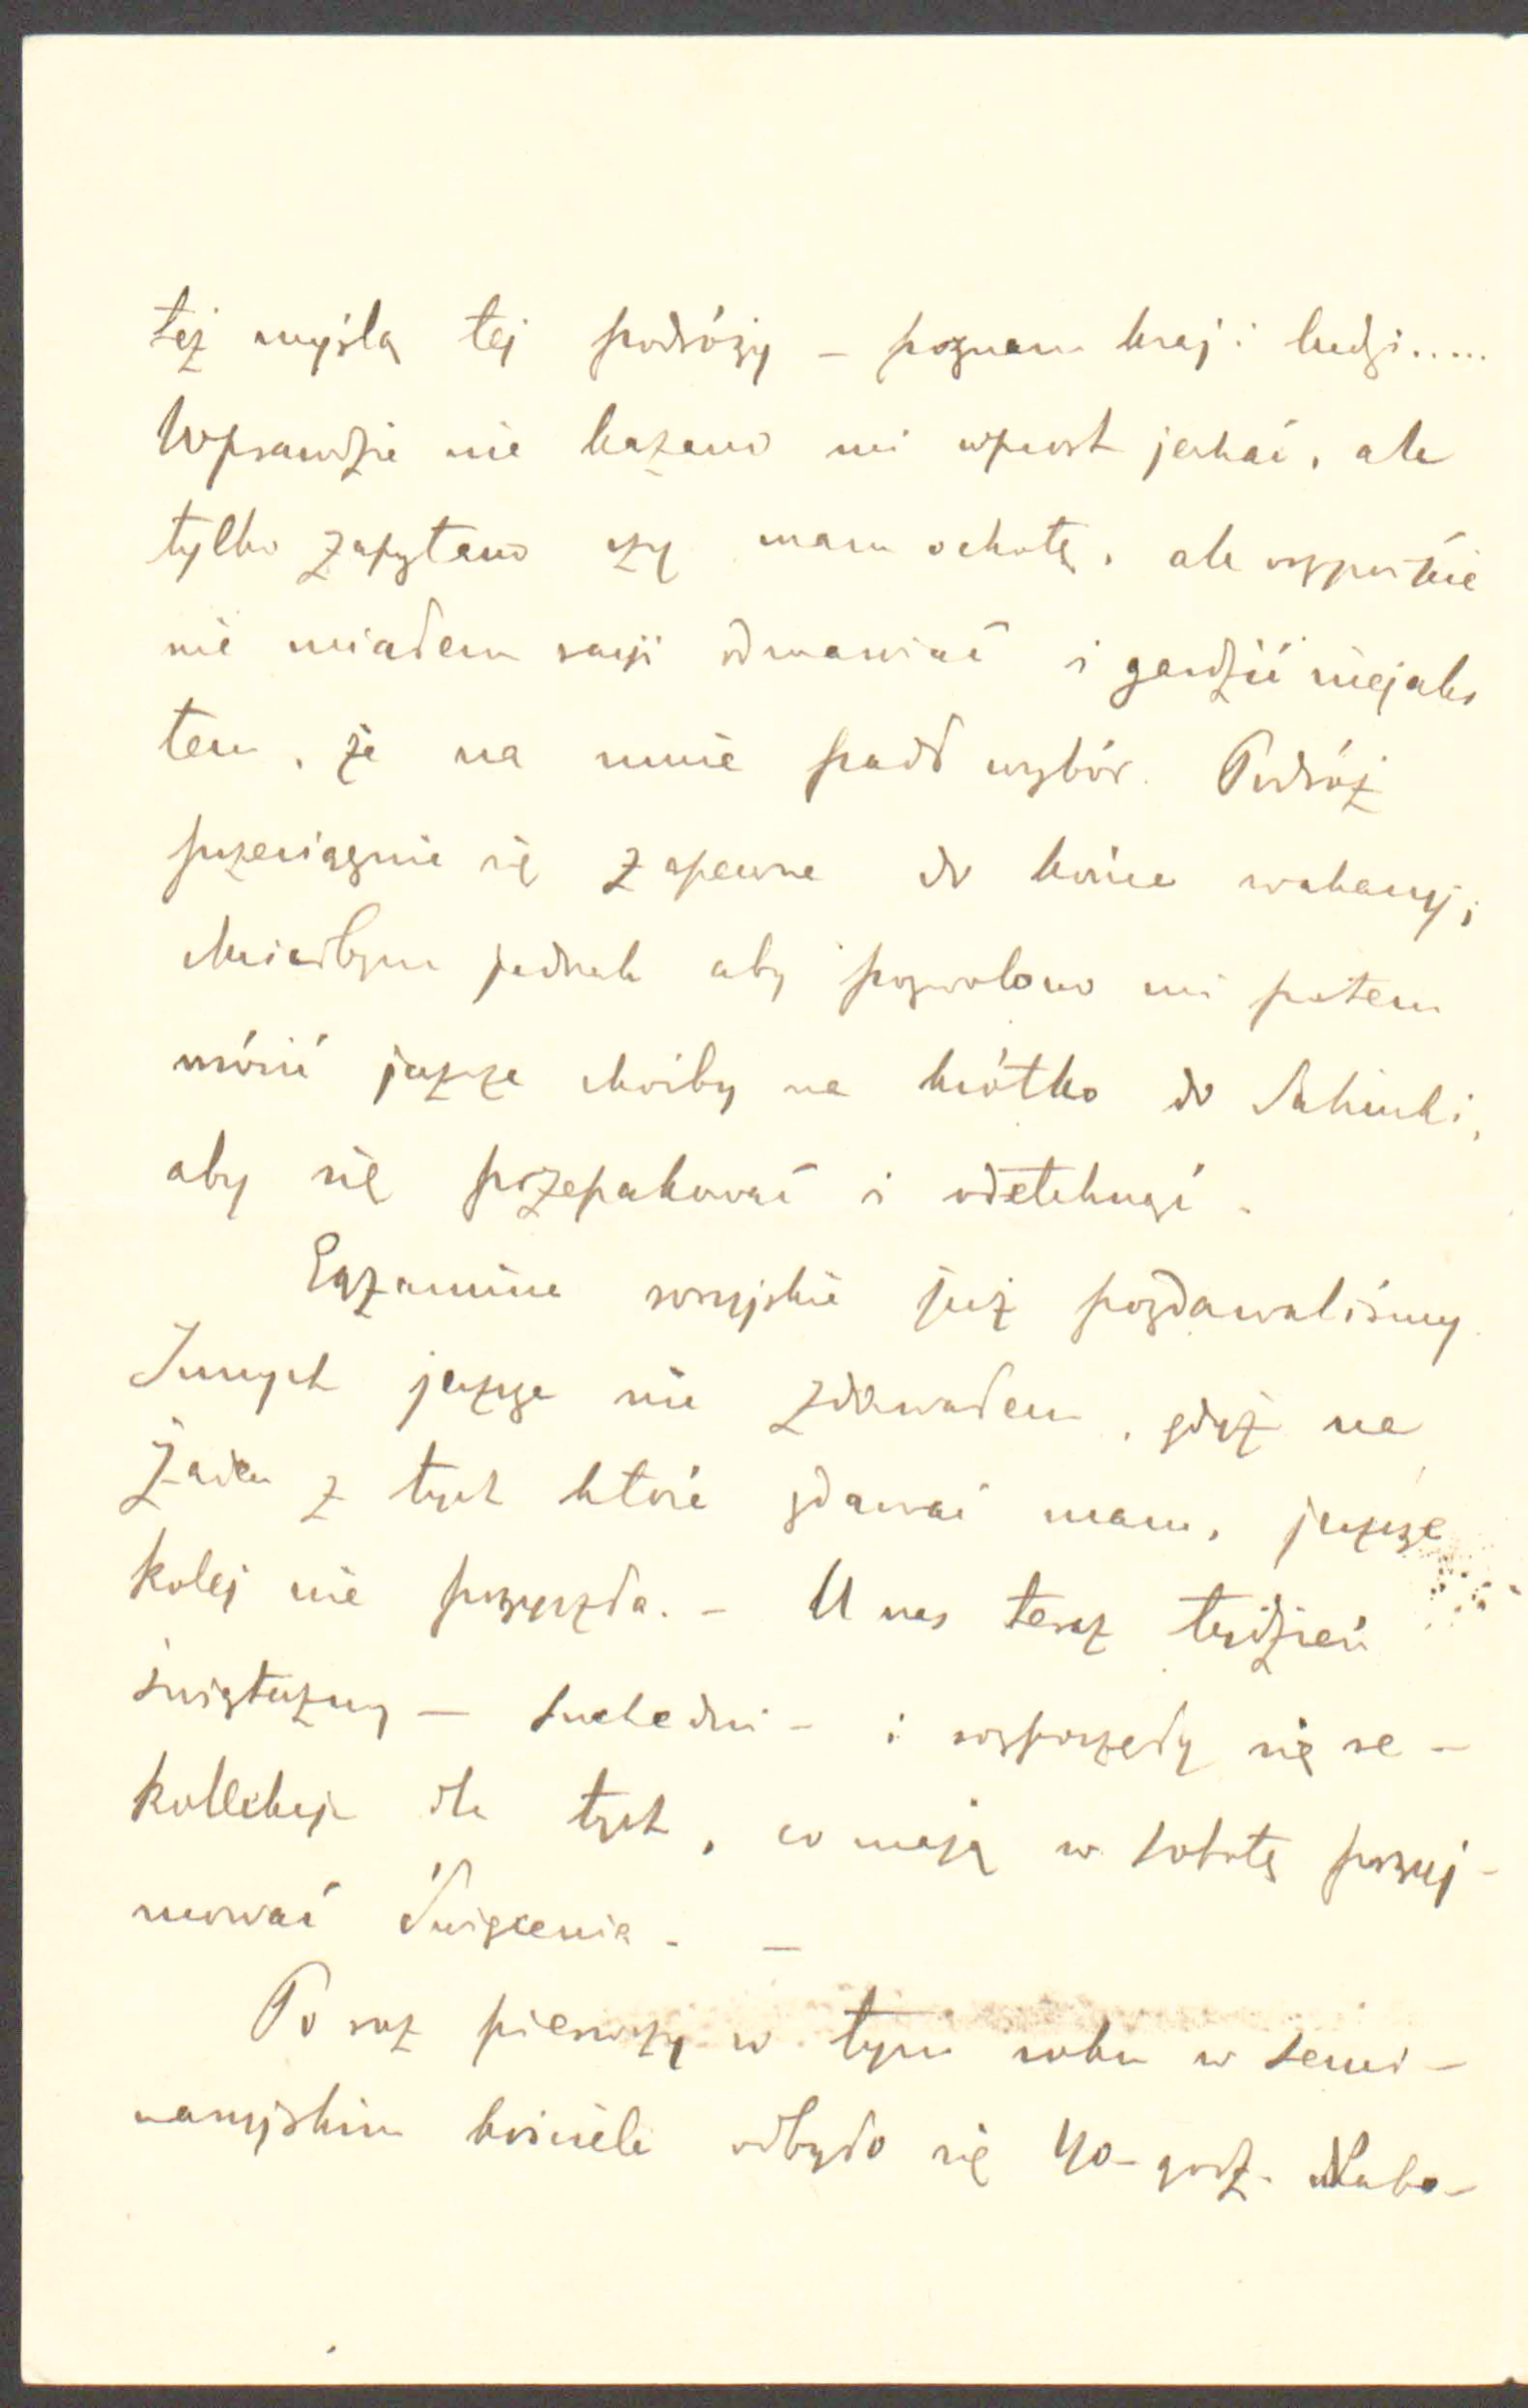 też myślą tej podróży – poznam kraj i ludzi.....
Wprawdzie nie kazano mi wprost jechać, ale
tylko zapytano czy mam ochotę, ale oczywiście
nie miałem racji odmawiać i gardzić niejako
tem, że na mnie padł wybór. Podróż
przeciągnie się zapewne do końca wakacyj;
chciałbym jednak aby pozwolono mi potem
wrócić jeszcze choćby na krótko do
aby się przepakować i odetchnąć.
Egzamina rosyjskie już pozdawaliśmy.
Innych jeszcze nie zdawałem, gdyż na
żaden z tych które zdawać mam, jeszcze
kolej nie przyszła. – U nas teraz tydzień
świąteczny – suchedni – i rozpoczęły się re–
kollekcje dla tych, co mają w sobotę przyj–
mować Święcenia. –
Po raz pierwszy w tym roku w semi–
naryjskim kościele odbyło się 40–godz. Nabo–